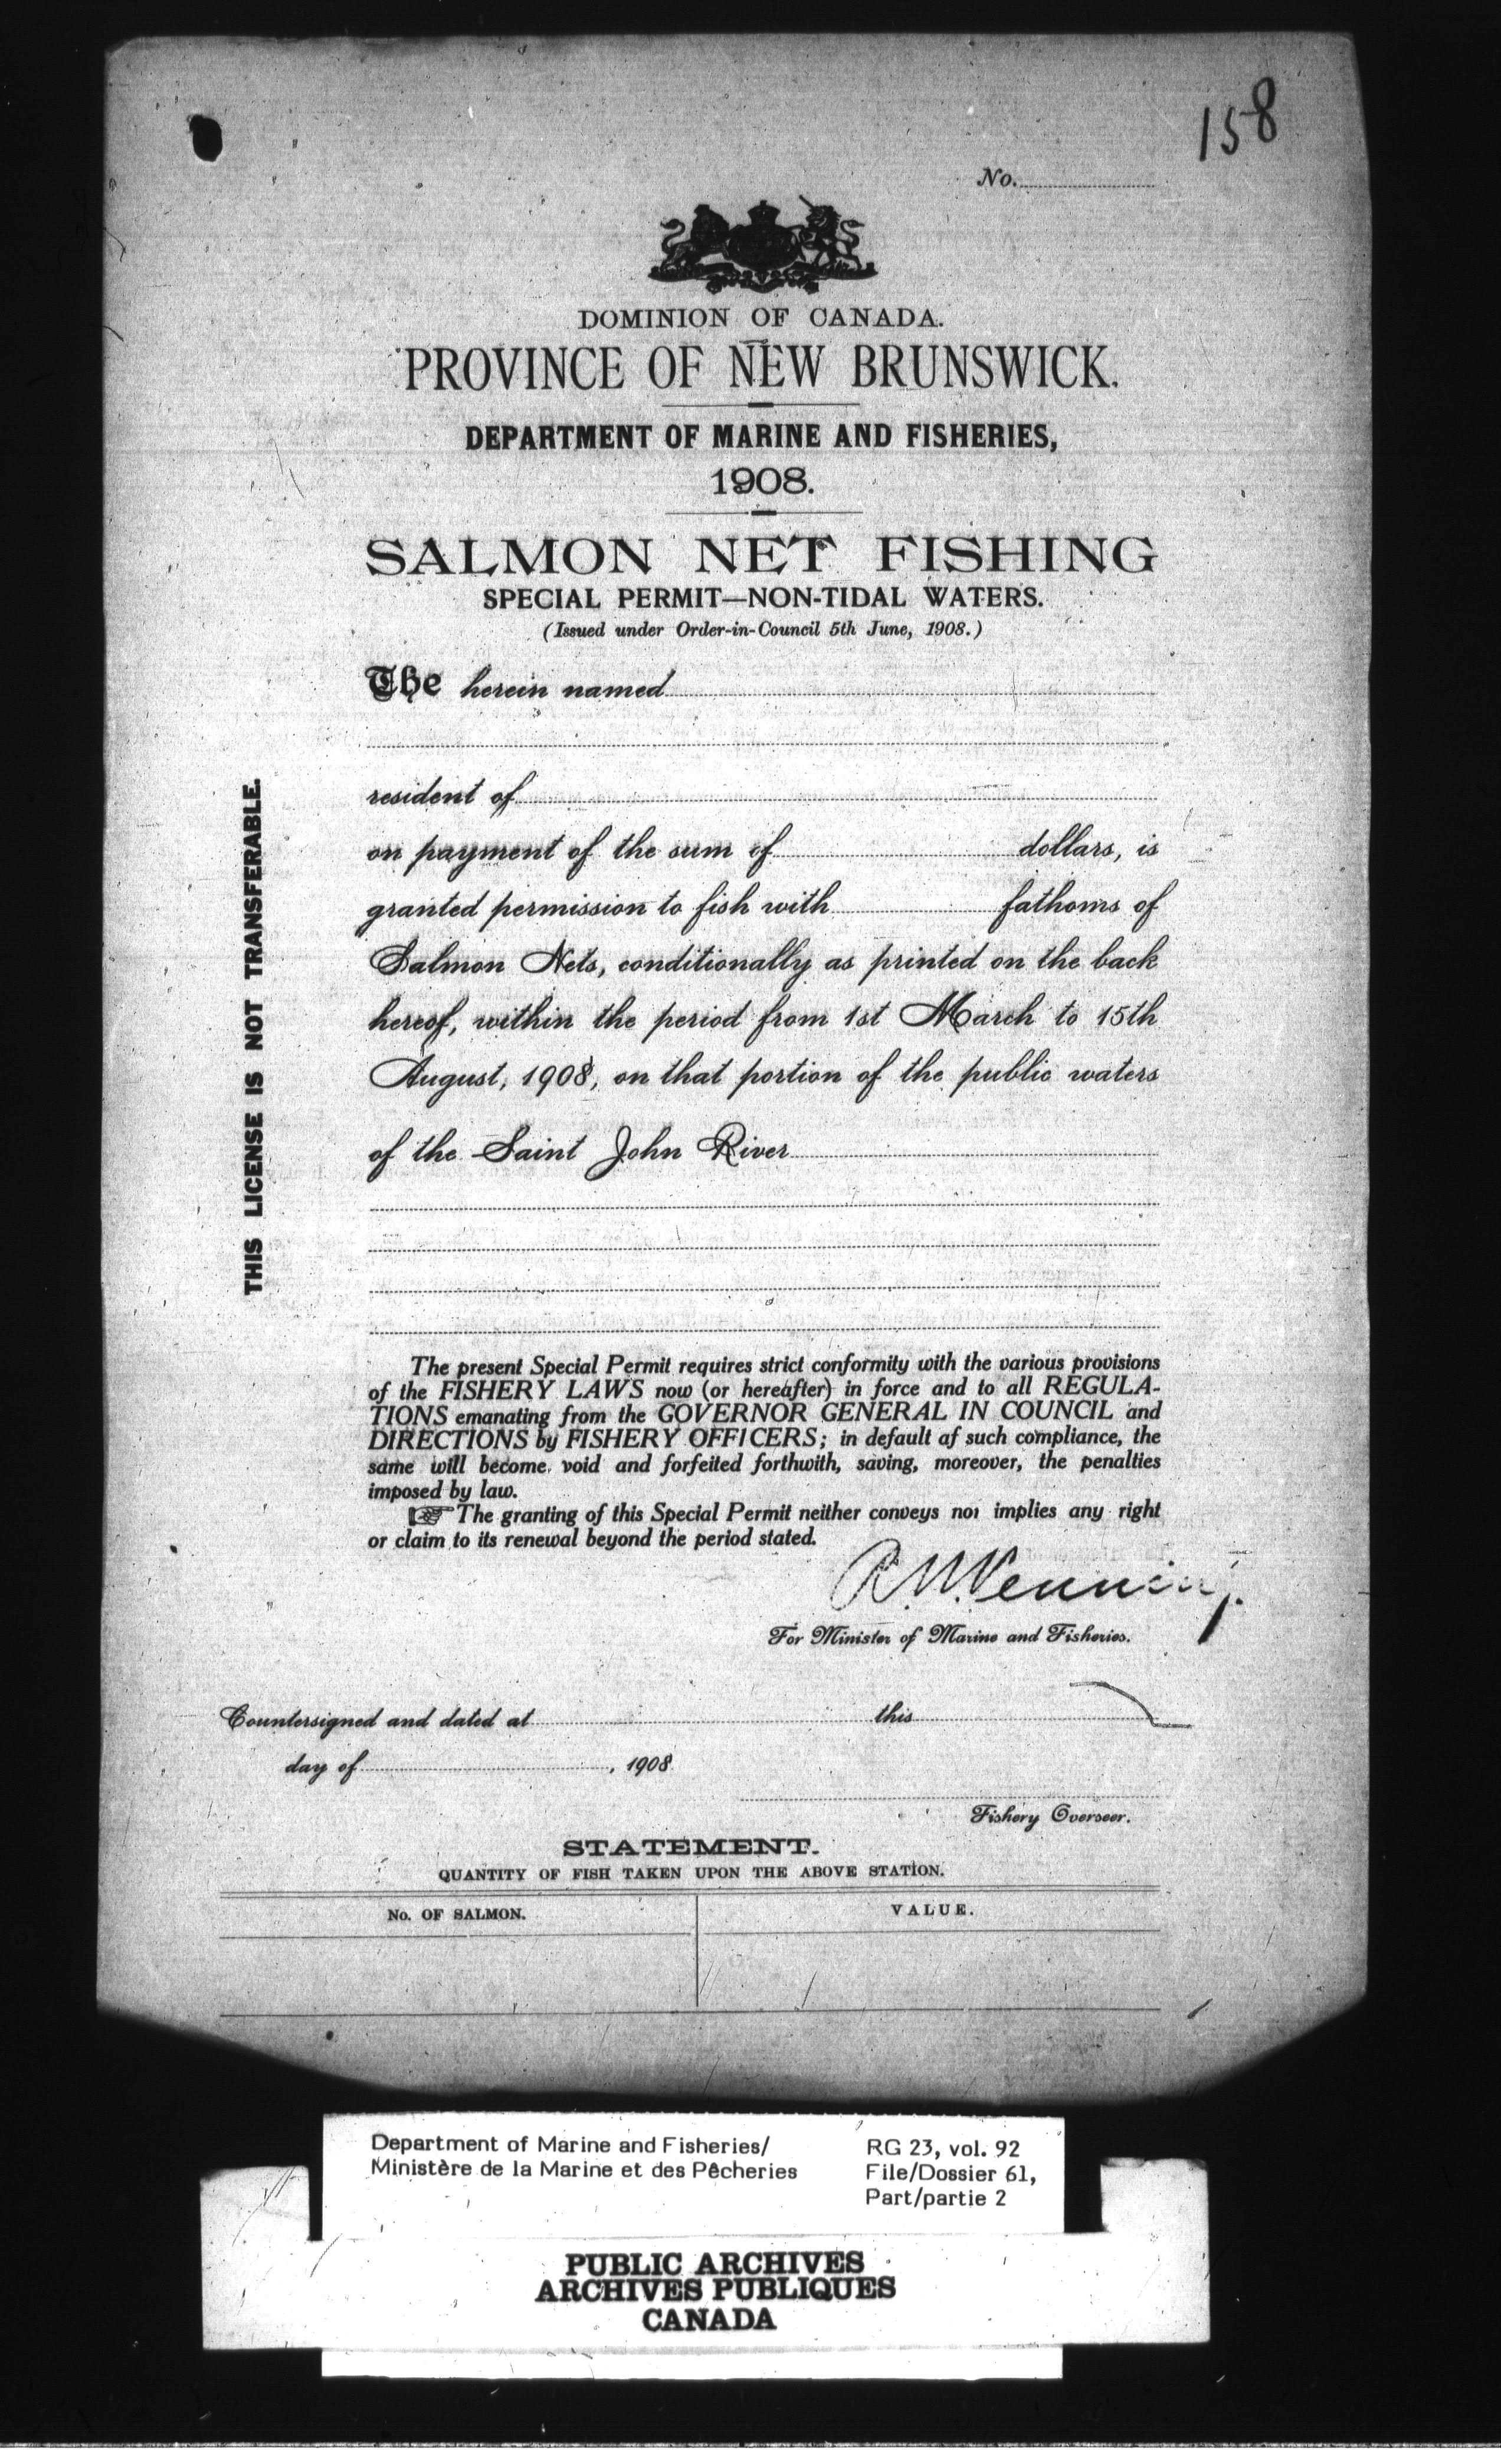 158
No.
DOMINION OF CANADA.
PROVINCE OF NEW BRUNSWICK.
DEPARTMENT OF MARINE AND FISHERIES,
1908.
SALMON NET FISHING
SPECIAL PERMIT—NON-TIDAL WATERS.
(Issued under Order-in-Council 5th June, 1908.)
The herein named
resident of
on payment of the sum of dollars, is
granted permission to fish with fathoms of
Salmon Nets, conditionally as printed on the back
hereof, within the period from 1st March to 15th
August, 1908, on that portion of the public waters
of the Saint John River
THIS LICENSE IS NOT TRANSFERABLE.
The present Special Permit requires strict conformity with the various provisions
of the FISHERY LAWS now (or hereafter) in force and to all REGULA-
TIONS emanating from the GOVERNOR GENERAL IN COUNCIL and
DIRECTIONS by FISHERY OFFICERS; in default af such compliance, the
same will become void and forfeited forthwith, saving, moreover, the penalties
imposed by law.
☞ The granting of this Special Permit neither conveys nor implies any right
or claim to its renewal beyond the period stated.
R. N. Venning.
For Minister of Marine and Fisheries.
Countersigned and dated at this
day of , 1908
Fishery Overseer.
STATEMENT.
QUANTITY OF FISH TAKEN UPON THE ABOVE STATION.
No. OF SALMON. VALUE.
Department of Marine and Fisheries/ RG 23, vol. 92
Ministère de la Marine et des Pêcheries File/Dossier 61,
Part/partie 2
PUBLIC ARCHIVES
ARCHIVES PUBLIQUES
CANADA